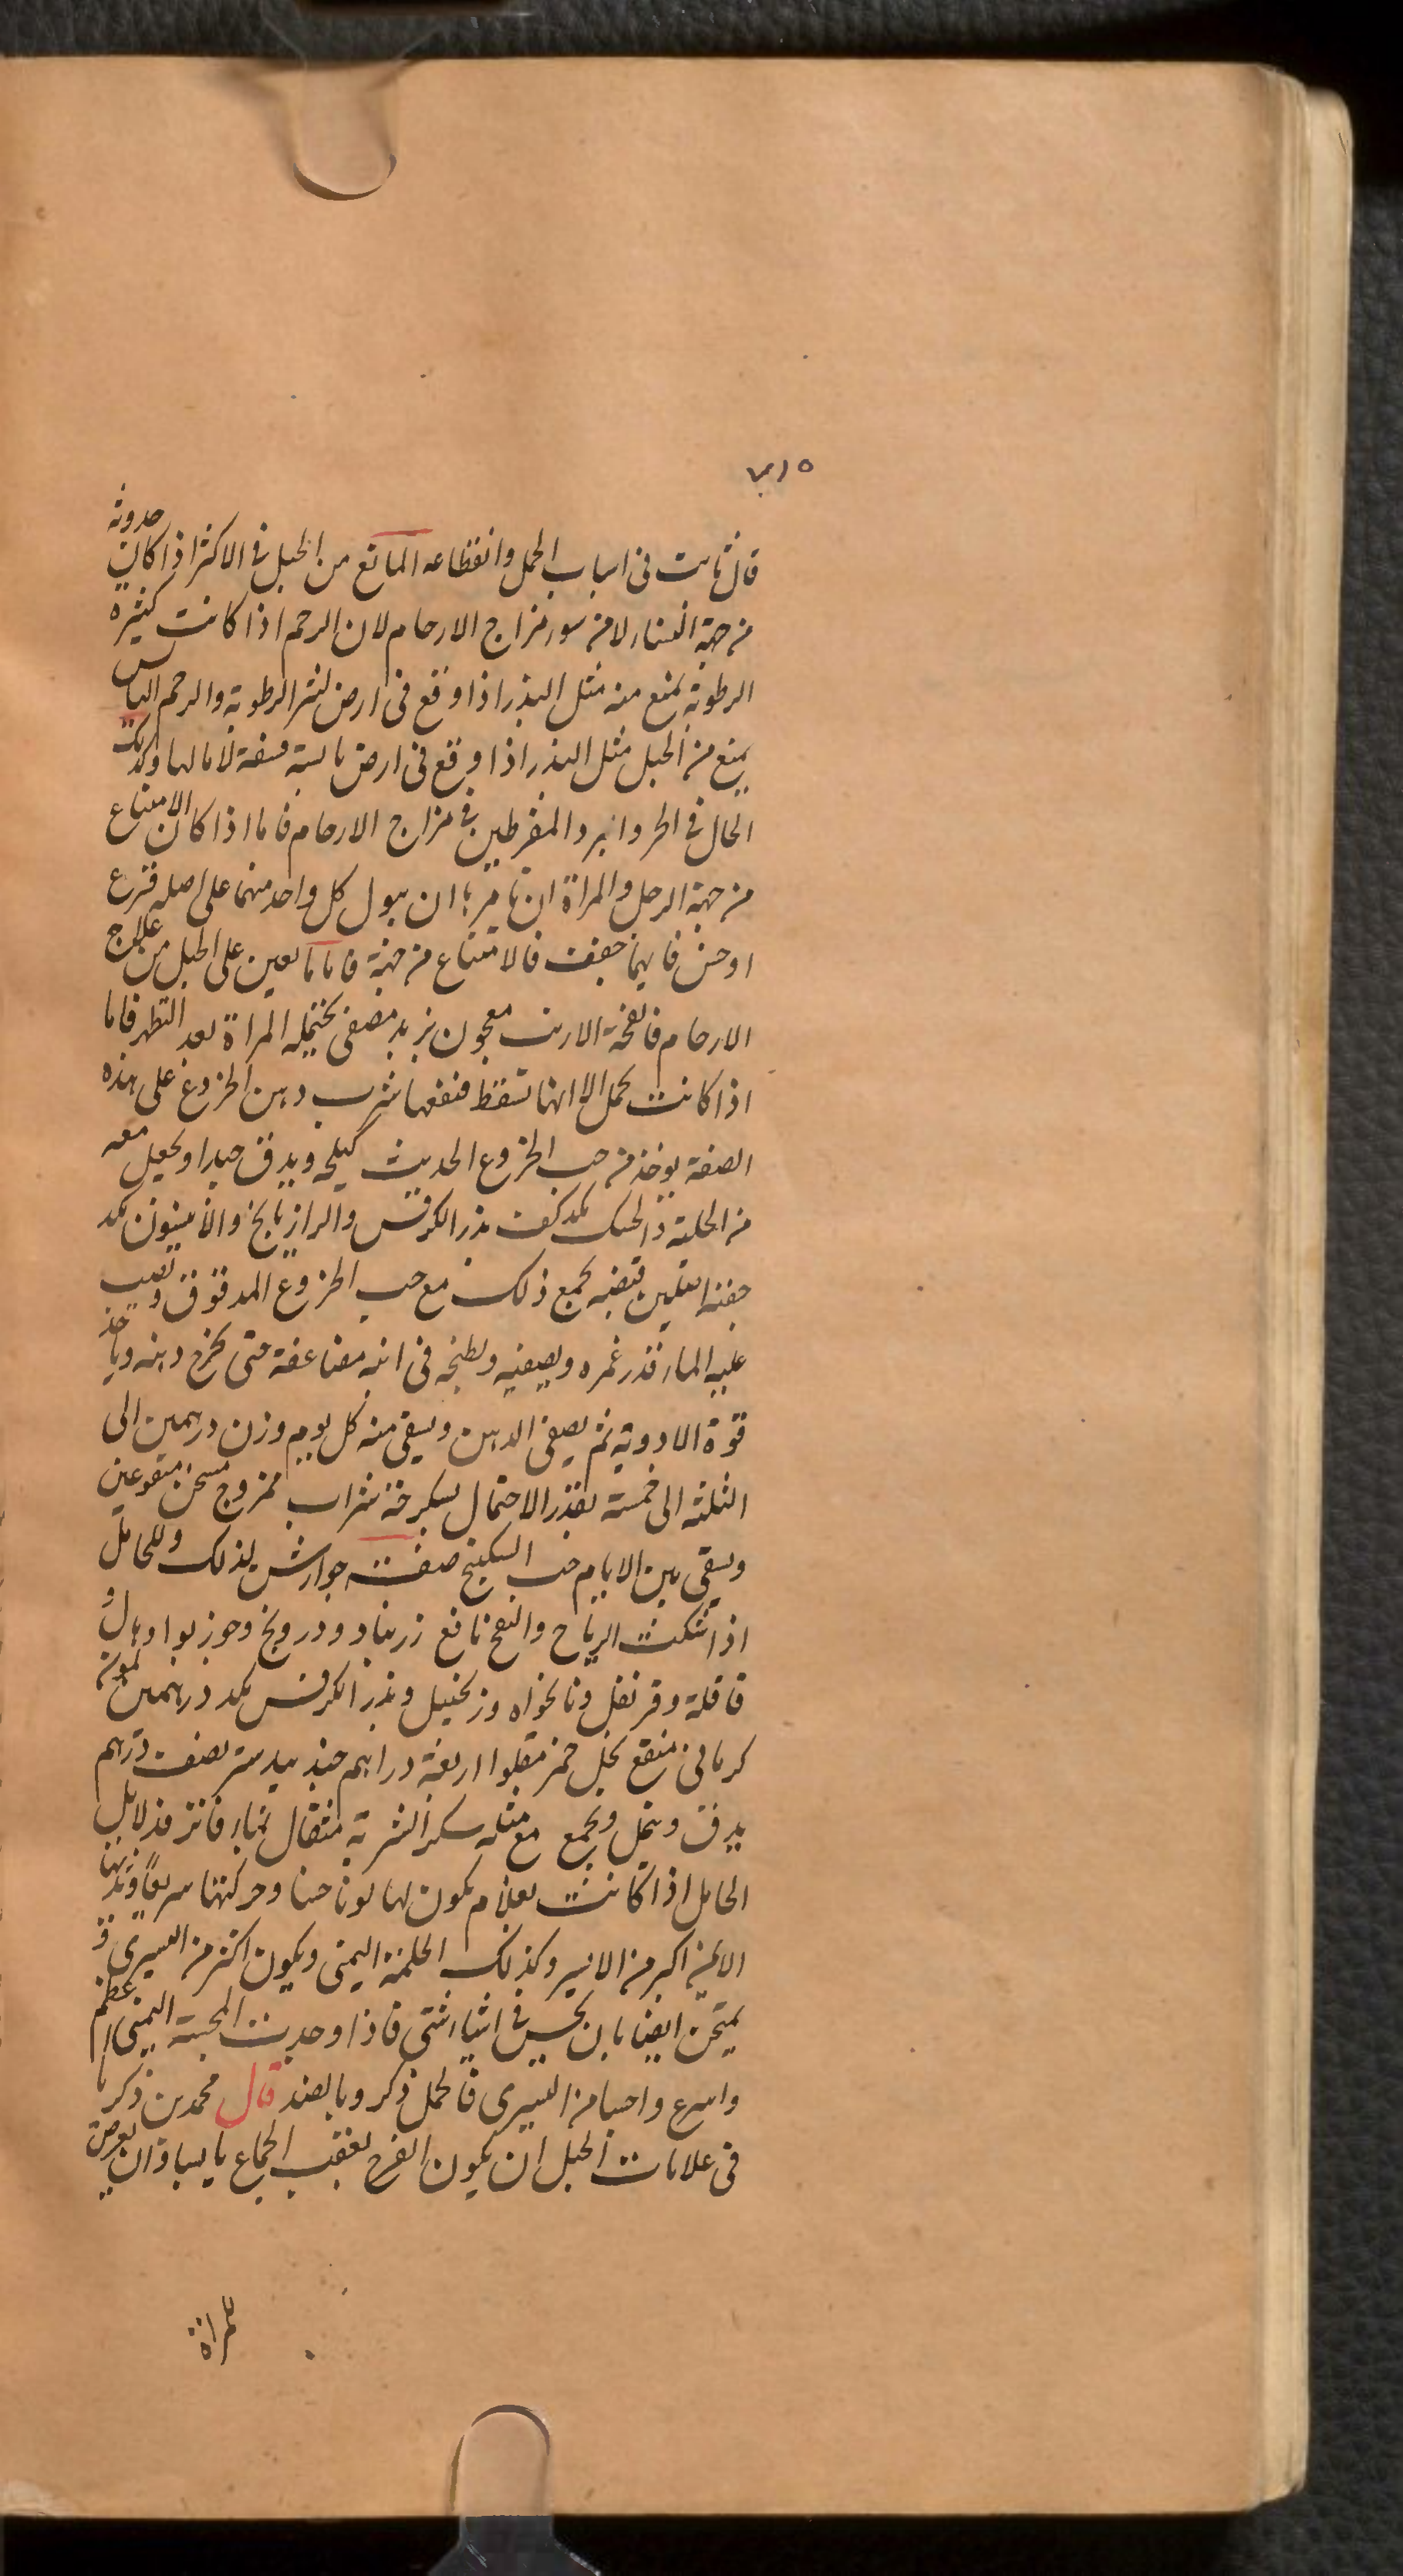 ٧١٥
قال ثابت فى اسباب الحمل وانقطاعه المانع من الحبل فى الاكثر اذا كان حدوثه
من جهة النساء لا من سور مزاج الارحام لان الرحم اذا كانت كثيرة
الرطوبة يمنع منه مثل البذر اذا وقع فى ارض الرطوبة والرحم اليابس
يمنع من الحبل مثل البذر اذا وقع فى ارض يابسة لا ما لها وكذلك
الحال فى الحر والبرد المفرطين فى مزاج الارحام فاما اذا كان الامتناع
من جهة الرجل والمراة ان يبول كل واحد منهما على اصله قرع
او خس فايهما جفت فالامتناع من جهته فاما ما يعين على الحبل من علاج
الارحام فانفحة الارنب معجون بزبد مصفى يحتمله المراة بعد التطهر فاما
اذا كانت تحمل الا انها تسقط فنفعها شرب دهن الخروع على هذه
الصفة يوخذ من حب الخروع الحديث كيلجه ويدق جيدا ويجعل معه
من الحلبة والحسك بمد كف بذر الكرفس والرازيانج والانيسون بمد
جفنه قبضه يجمع ذلك مع حب الخروع المدقوق ويصب
عليه الماء قدر غمره ويصفيه ويطبخه فى انيه مضاعفة حتى يخرج دهنه وياخذ
قوة الادوية ثم يصفى الدهن ويسقى منه كل يوم وزن درهمين الى
الثلثه الى خمسة بقدر الاحتمال بسكرجة شراب ممزوج مسخن
ويسقى بين الايام حب السكبينج صفت جوارش لذلك وللحامل
اذا اشتكت الرياح والنفخ نافع زرنباد ودرونج وجوز بوا وهال و
قاقلة وقرنفل ونانخواه وزنجبيل وبذر الكرفس بمد درهمين كمون
كرمانى منقع بخل خمر مقلوا اربعة دراهم جندبيدستر نصف درهم
يدق وينخل ويجمع مع مثله سكر الشربة مثقال بماء فاتر فدلايل
الحامل اذا كانت بغلام يكون لها لونا حسنا وحركتها سريعا وثديها
الايمن اكبر من الايسر وكذلك الحلمة اليمنى ويكون اكثر من اليسرى و
يمتحن ايضا بان يجس فى اشياء شتى فاذا وجدت المجسة اليمنى اعظم
واسرع من اليسرى فالحمل ذكر وبالضد قال محمد بن ذكريا
فى علامات الحبل ان يكون الفرج بعقب الجماع يابسا وان يعرض
للمراة